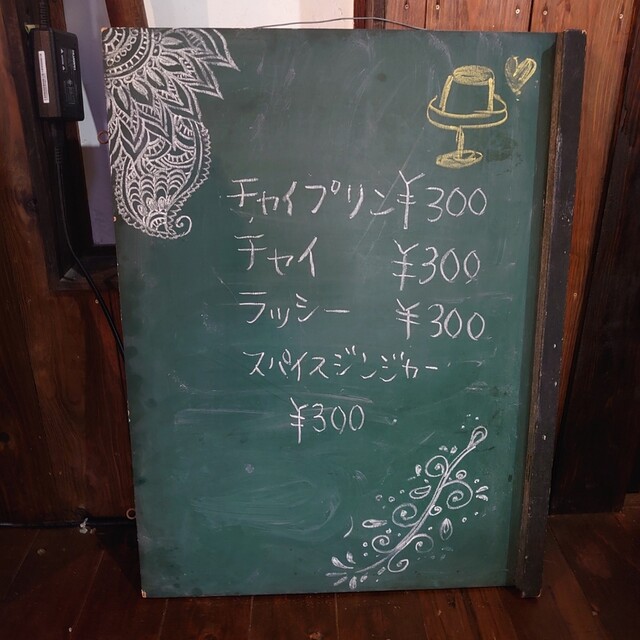 チャイプリン¥300
チャイ ¥300
ラッシー ¥300
スパイスジンジャー
¥300